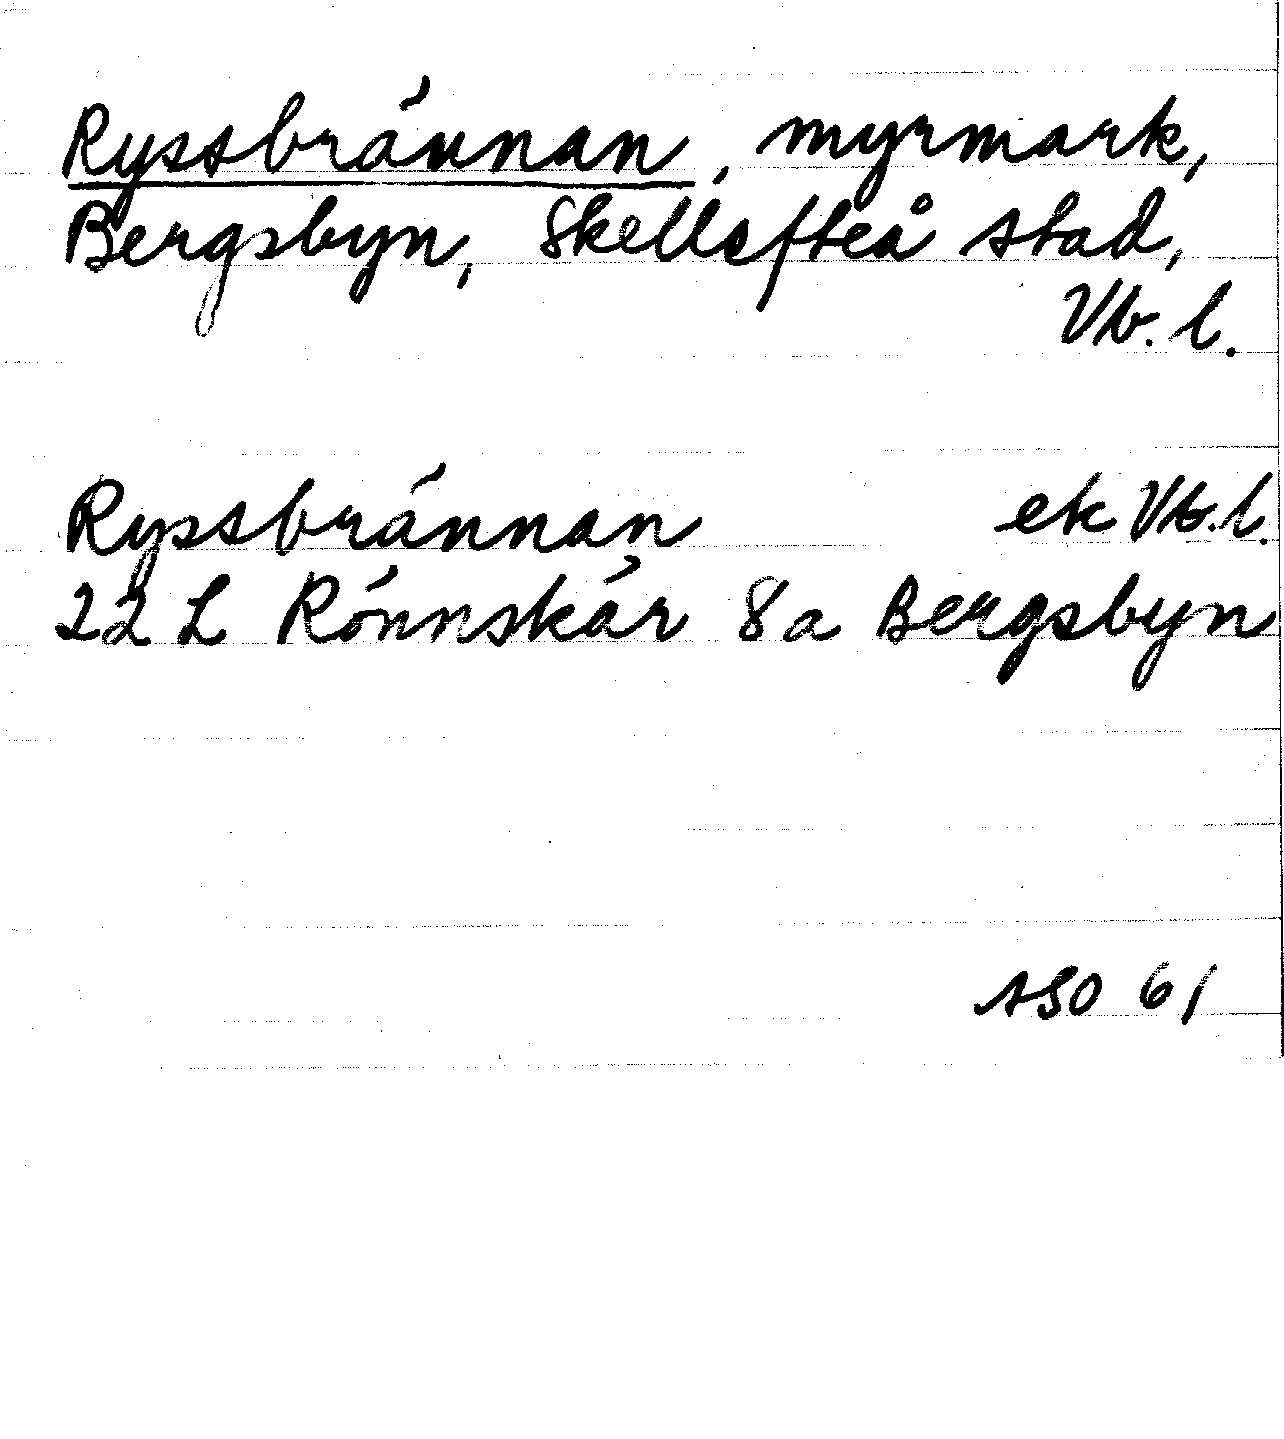 Ryssbrännan, myrmark,
Bergsbyn, Skellefteå stad,
Vb. l.
Ryssbrännan ek Vb. l.
22 L Rönnskär 8a Bergsbyn
ASO 61